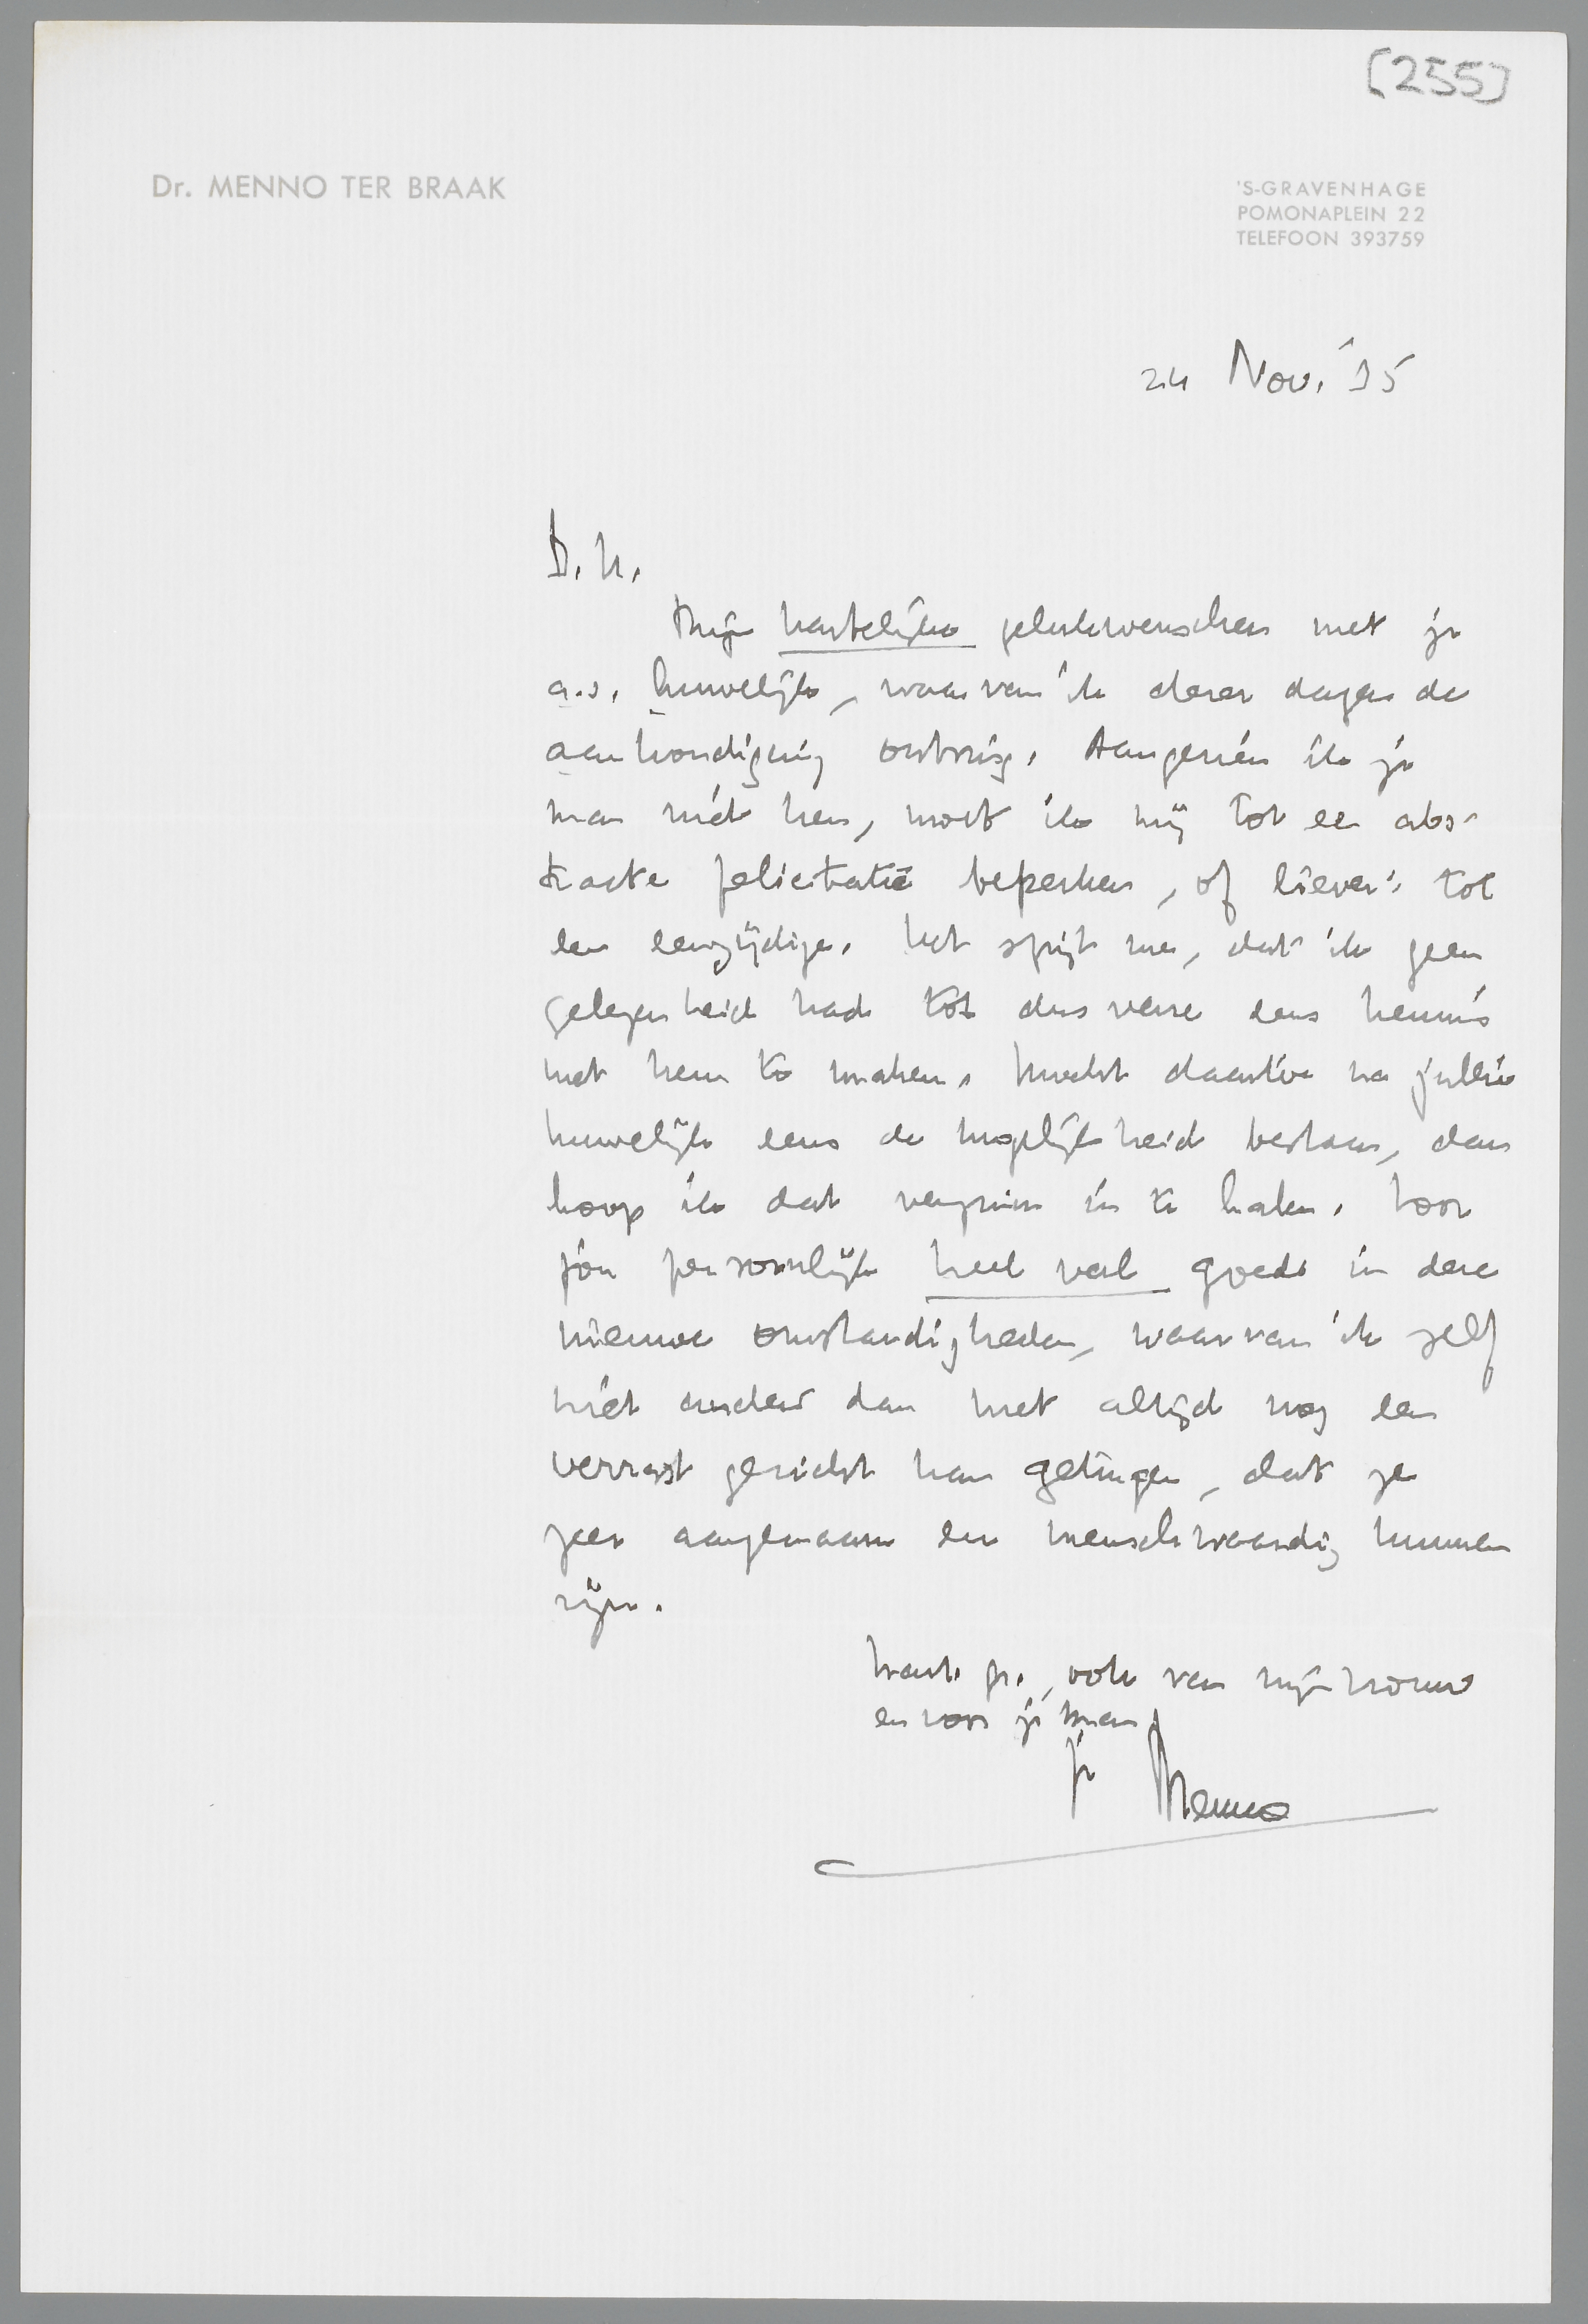 [255]
Dr. MENNO TER BRAAK
'S-GRAVENHAGE
POMONAPLEIN 22
TELEFOON 393759
24 Nov. '35
D. H.
Mijn hartelijke gelukwenschen met je
a.s. huwelijk, waarvan ik dezer dagen de
aankondiging ontving. Aangezien ik je
man niet ken, moet ik mij tot een abs-
tracte felicitatie beperken, of liever: tot
een eenzijdige. Het spijt me, dat ik geen
gelegenheid had tot dusverre eens kennis
met hem te maken. Mocht daartoe na jullie
huwelijk eens de mogelijkheid bestaan, dan
hoop ik dat verzuim in te halen. Voor
jou persoonlijk heel veel goeds in deze
nieuwe omstandigheden, waarvan ik zelf
niet anders dan met altijd nog een
verrast gezicht kan getuigen, dat ze
zeer aangenaam en menschwaardig kunnen
zijn.
Hart. gr., ook van mijn vrouw
en voor je man,
je Menno